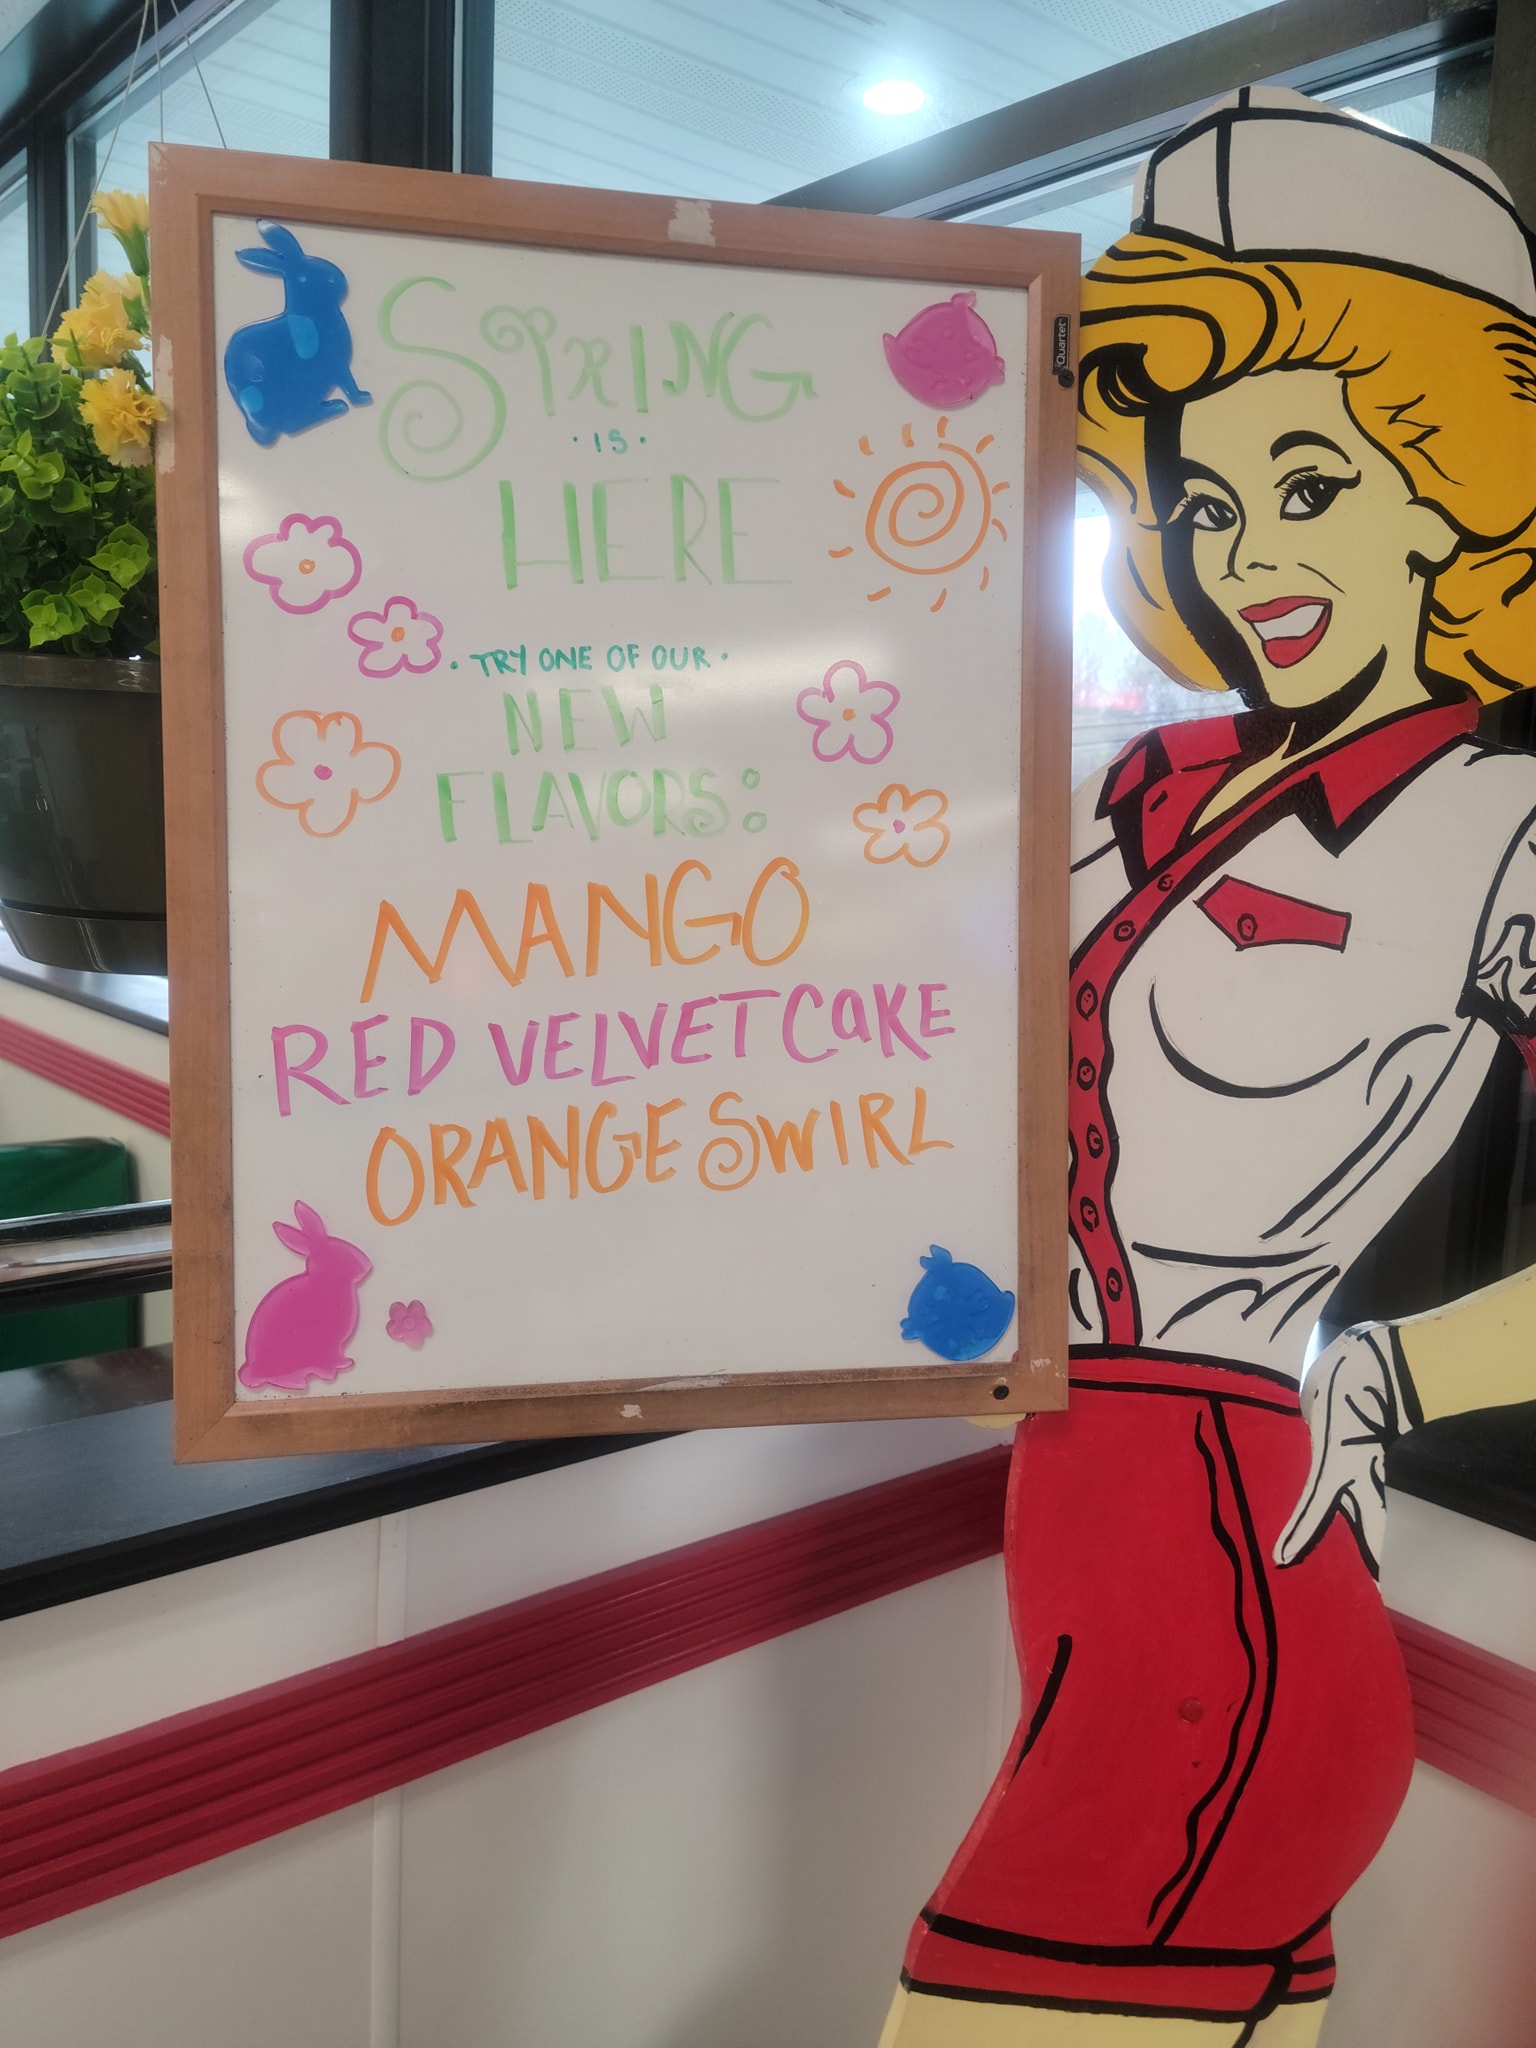 SPRING
·IS·
HERE
·TRY ONE OF OUR·
NEW
FLAVORS:
MANGO
RED VELVET CaKE
ORANGE SWIRL
Quartet